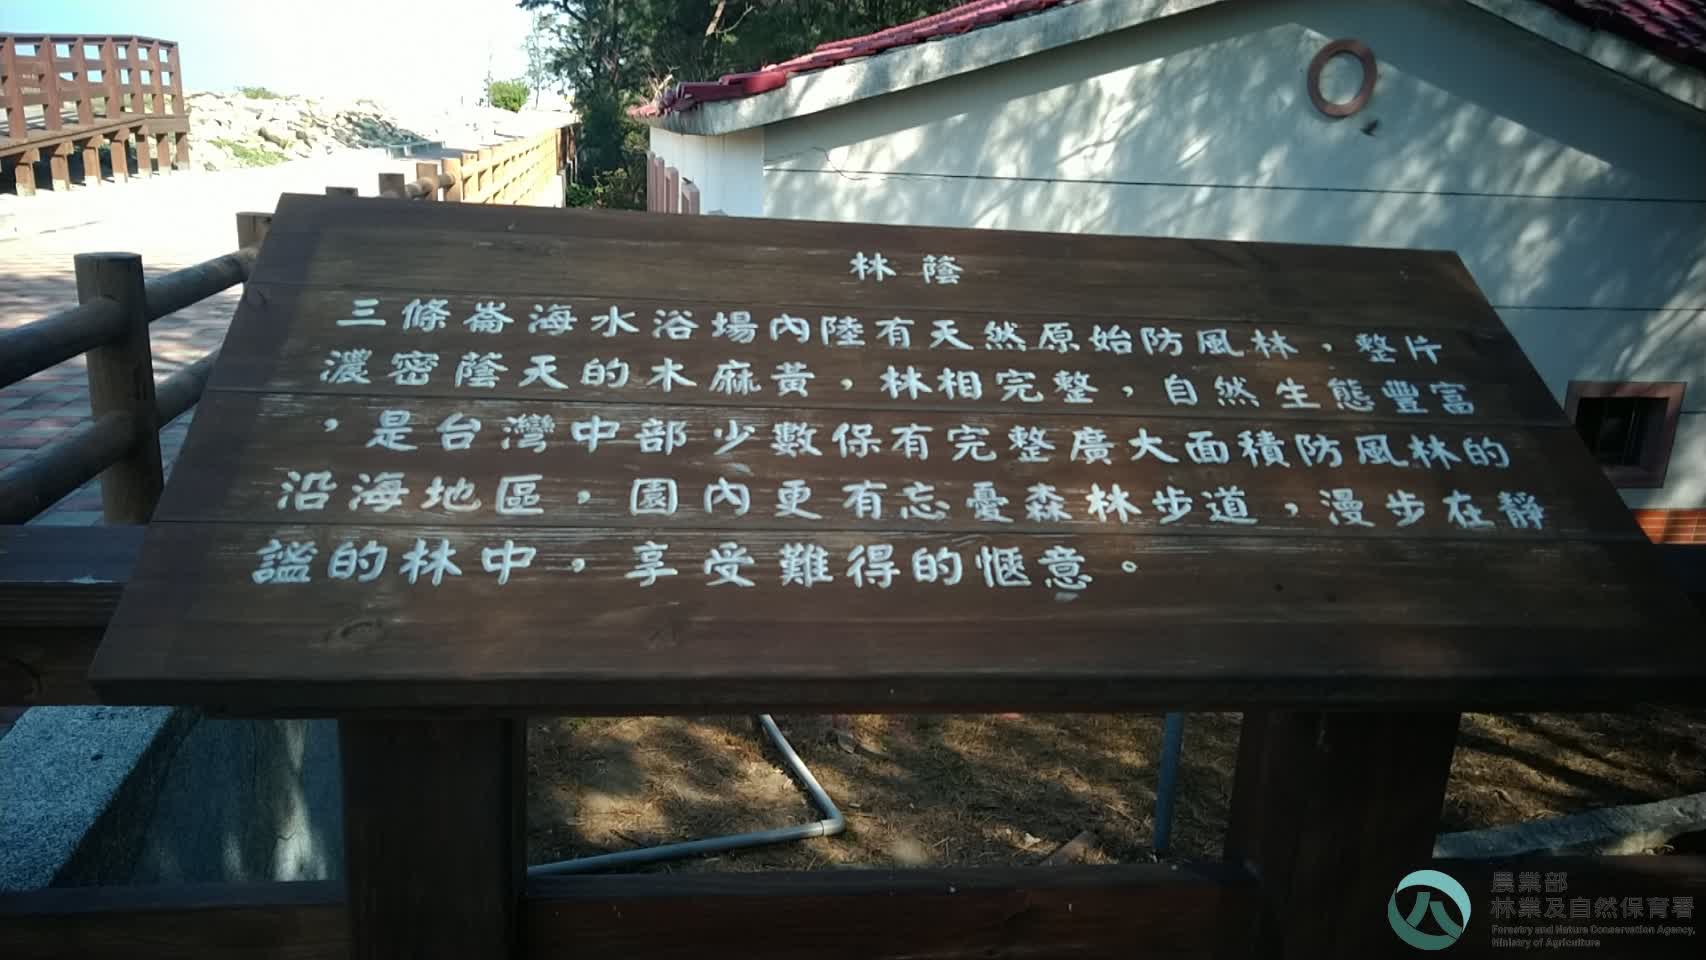 林蔭
三條崙海水浴場內陸有天然原始防風林，整片
濃密蔭天的木麻黃，林相完整，自然生態豐富
，是台灣中部少數保有完整廣大面積防風林的
沿海地區，園內更有忘憂森林步道，漫步在靜
謐的林中，享受難得的愜意。
農業部
林業及自然保育署
Forestry and Nature Conservation Agency,
Ministry of Agriculture